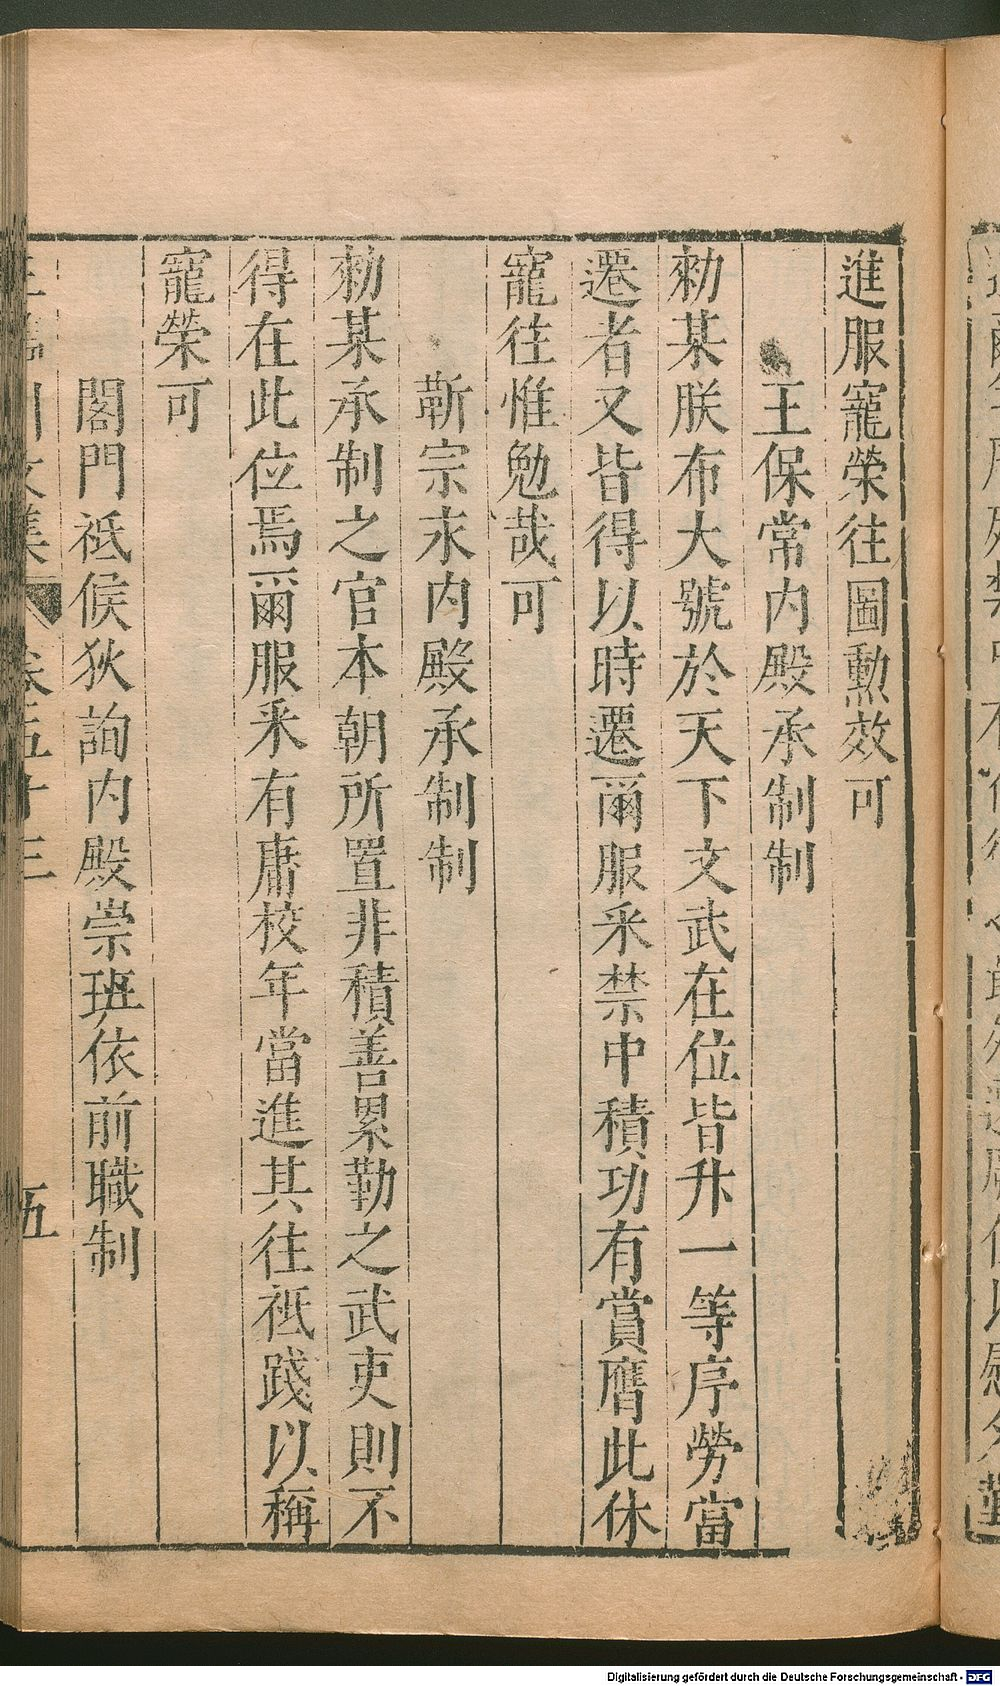 進服寵榮往圖勲效可
王保常內殿承制制
勑某朕布大號於天下文武在位皆升一等序勞當
遷者又皆得以時遷爾服采禁中積功有賞膺此休
寵往惟勉哉可
靳宗永內殿承制制
勑某承制之官本朝所置非積善累勤之武吏則不
得在此位焉爾服采有庸校年當進其往祗踐以稱
寵榮可
閣門祗候狄詢內殿崇班依前職制
文集 卷五十三 五
Digitalisierung gefördert durch die Deutsche Forschungsgemeinschaft - DFG